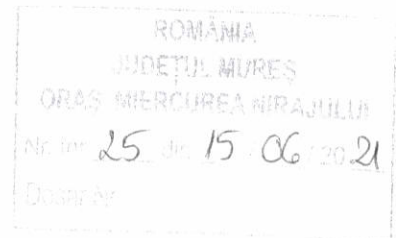 ROMÂNIA
JUDEȚUL MUREȘ
ORAȘ MIERCUREA NIRAJULUI
Nr. 25 din 15 / 06 / 2021
Dosar nr.